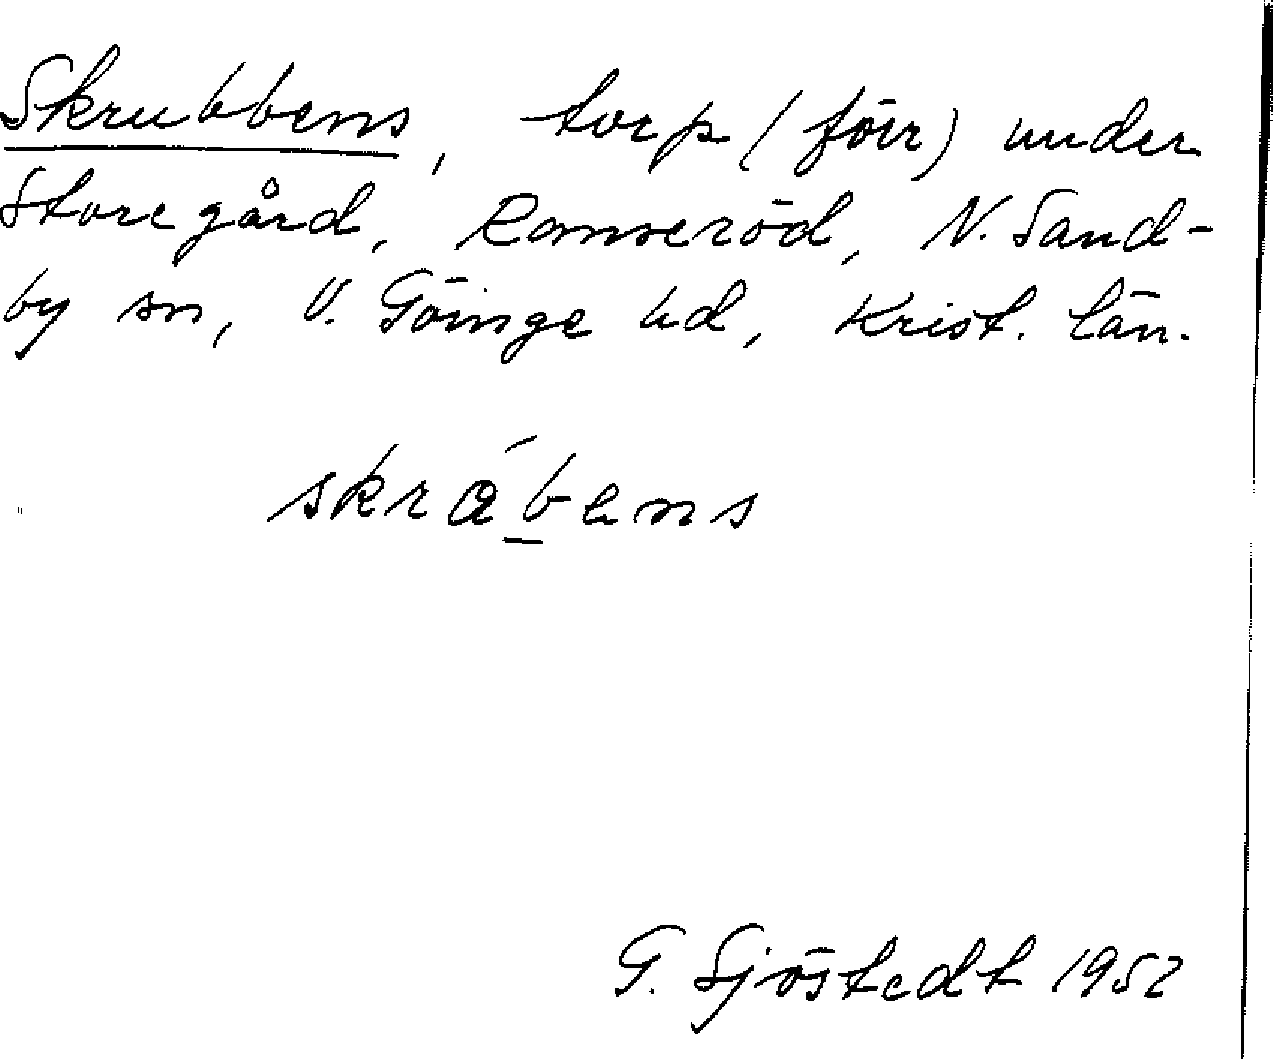 Skrubbens, torp (förr) under
Storegård, Ramseröd, N. Sand-
by sn, V. Göinge hd, Krist. län.
skrábens
G. Sjöstedt 1952